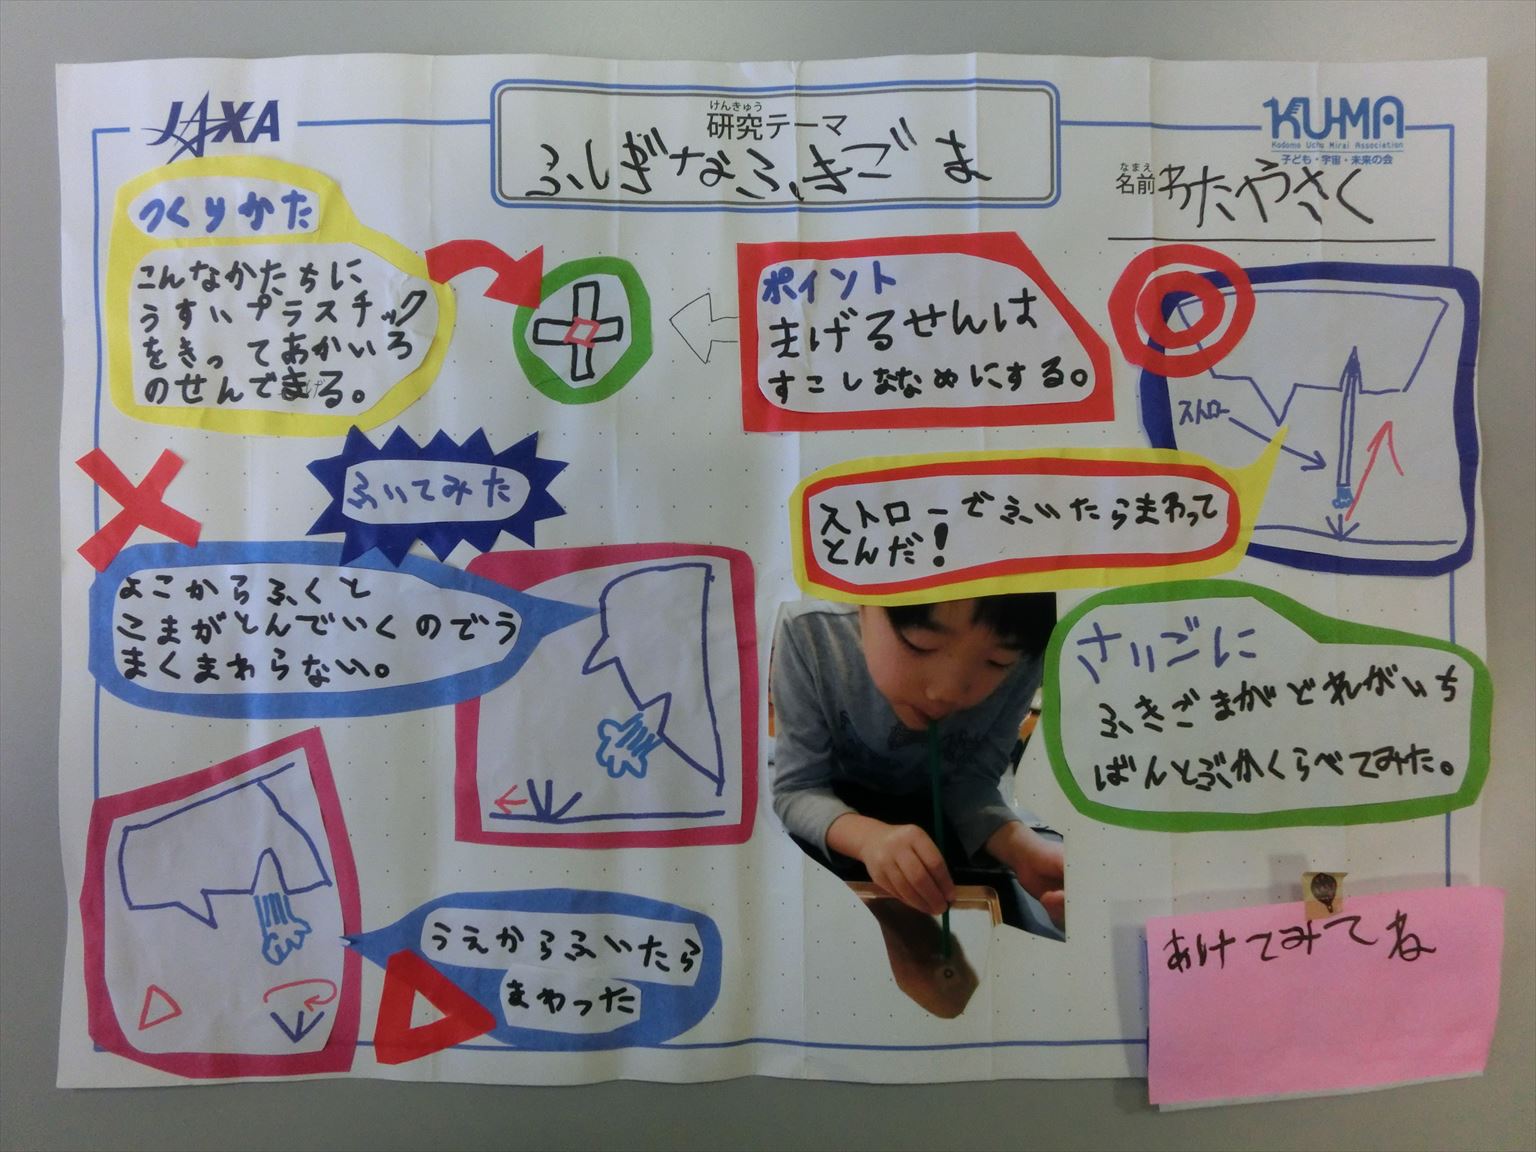 JAXA
けんきゅう
研究テーマ
ふしぎなふきごま
KU-MA
Kodomo Uchu Mirai Association
子ども・宇宙・未来の会
なまえ
名前 わたやさく
つくりかた
こんなかたちに
うすいプラスチック
をきってあかいろ
のせんでまげる。
ポイント
まげるせんは
すこしななめにする。
ストロー
ストローでふいたらまわって
とんだ!
ふいてみた
よこからふくと
こまがとんでいくのでう
まくまわらない。
うえからふいたら
まわった
さいごに
ふきごまがどれがいち
ばんとぶかくらべてみた。
あけてみてね